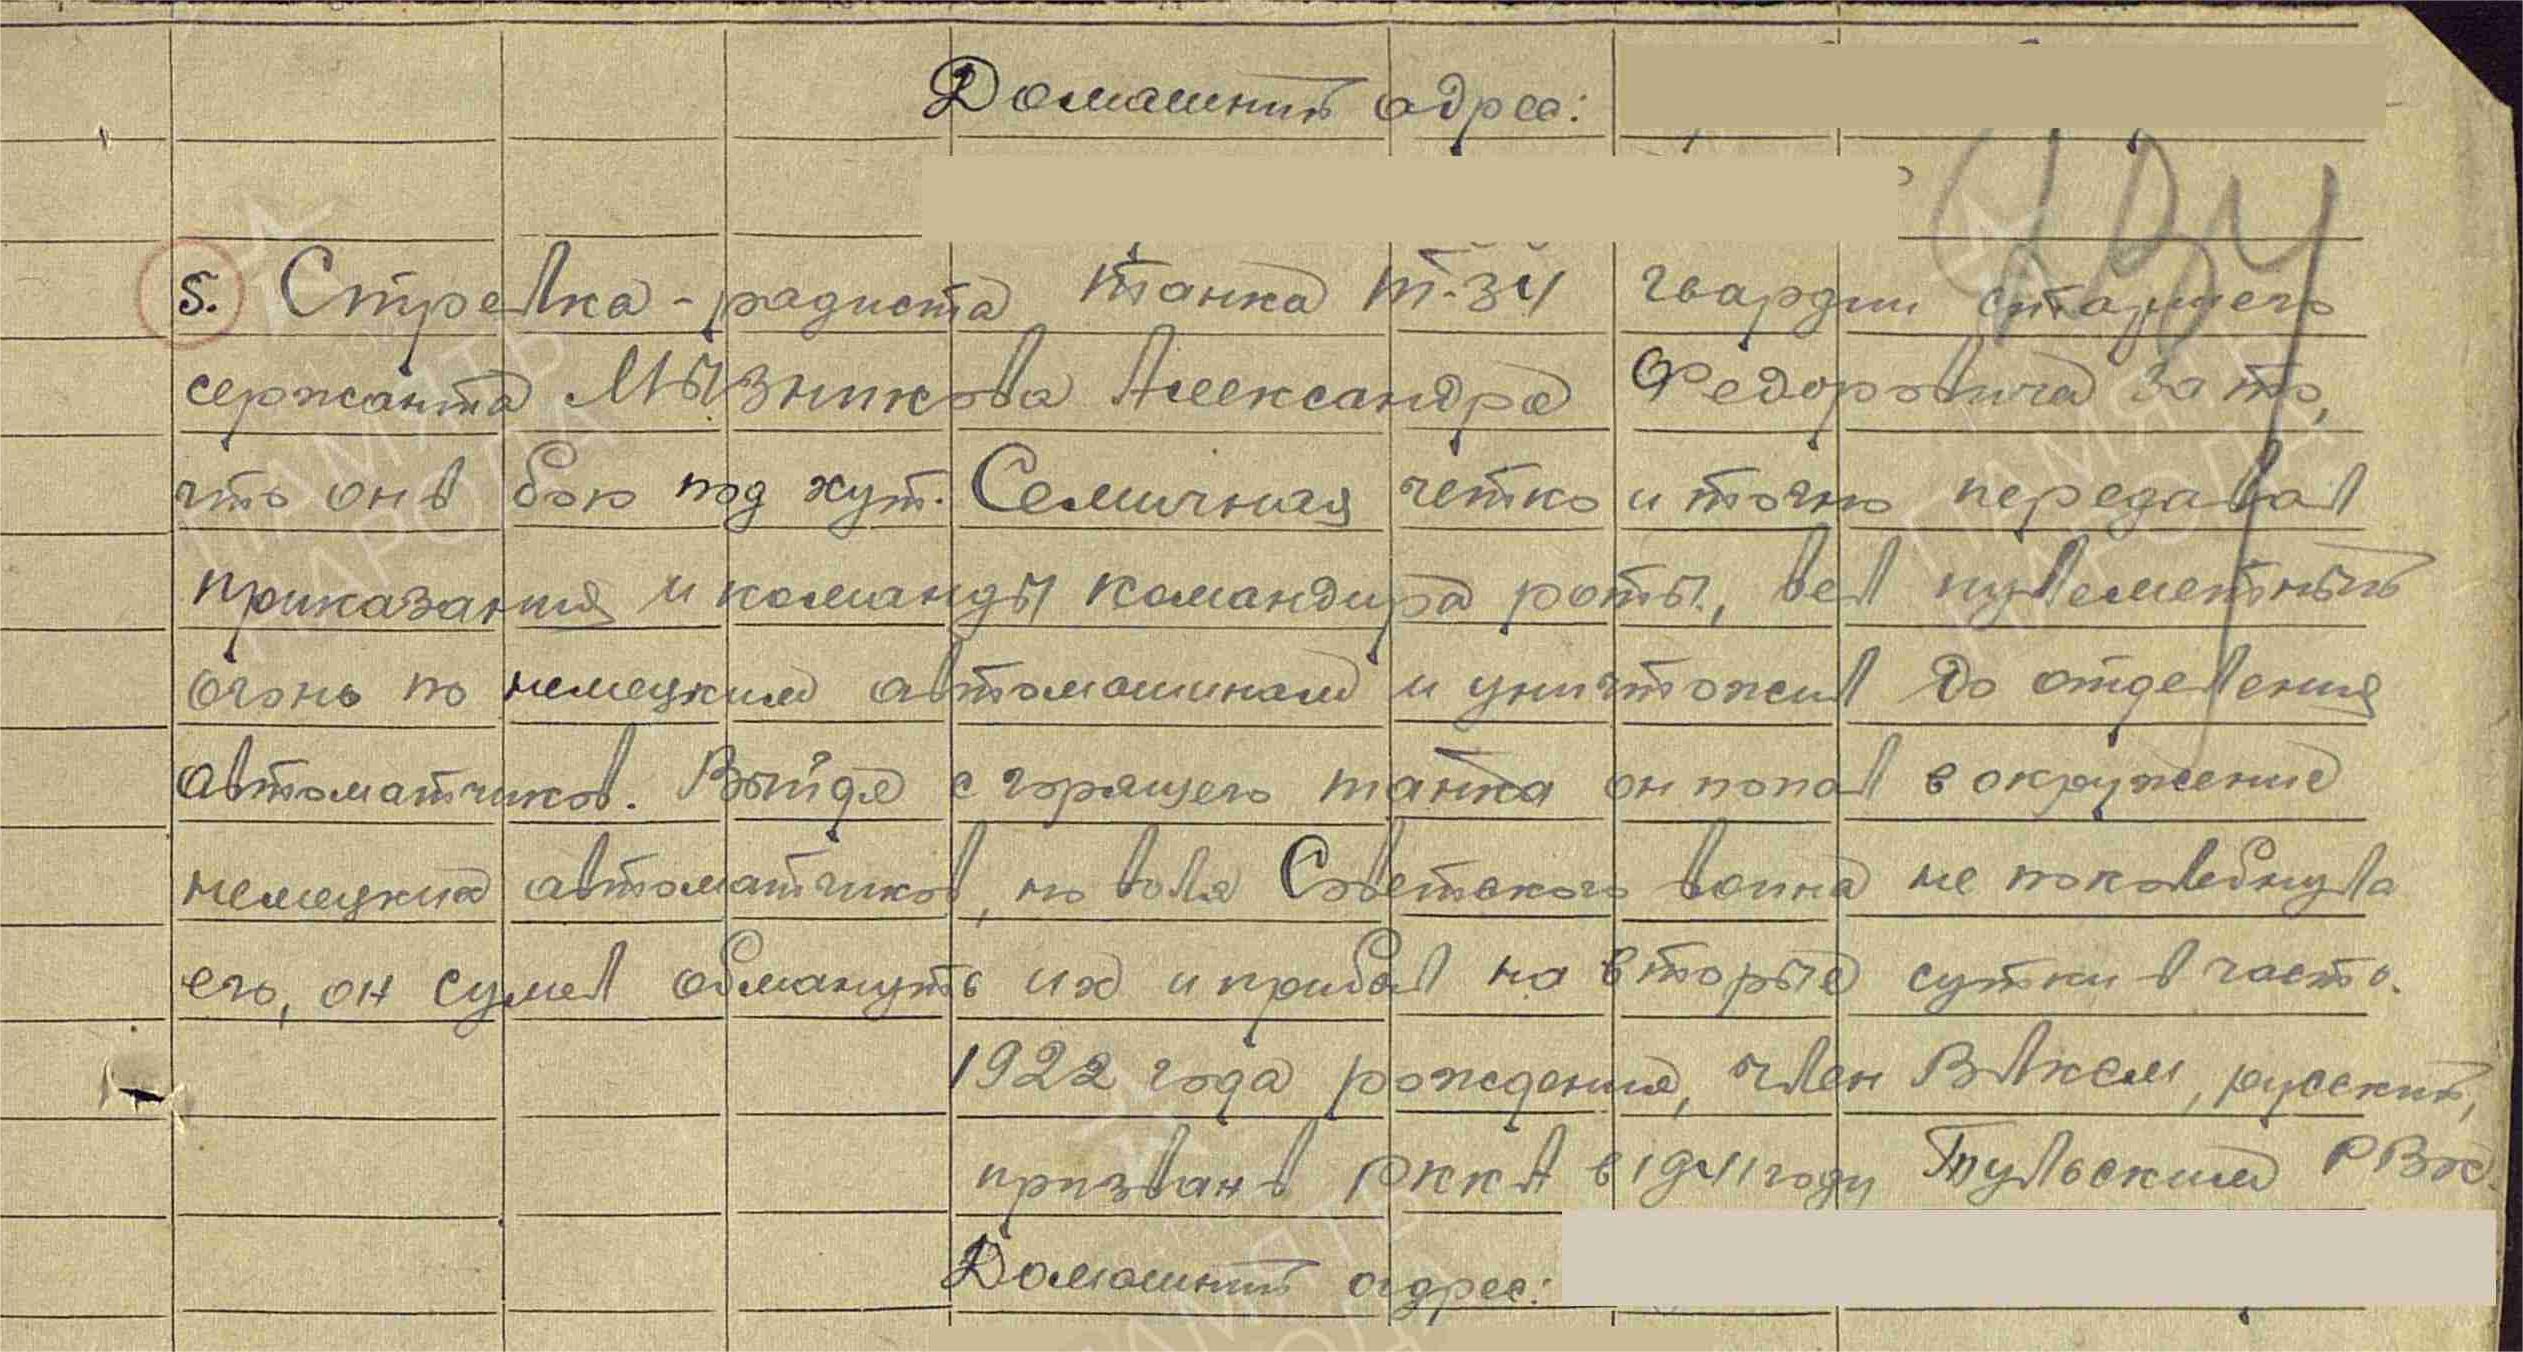 Домашний адрес:
5. Стрелка-радиста танка Т-34 гвардии старшего
сержанта Мызникова Александра Федоровича за то,
что он в бою под хут. Семичная четко и точно передавал
приказания и команды командира роты, вел пулеметный
огонь по немецким автомашинам и уничтожил до отделения
автоматчиков. Выйдя с горящего танка он попал в окружение
немецких автоматчиков, но воля Советского воина не поколебнула
его, он сумел обмануть их и прибыл на вторые сутки в часть.
1922 года рождения, член ВЛКСМ, русский,
призван в РККА в 1941 году Тульским РВК.
Домашний адрес:
ПАМЯТЬ
НАРОДА
ПАМЯТЬ
НАРОДА
ПАМЯТЬ
НАРОДА